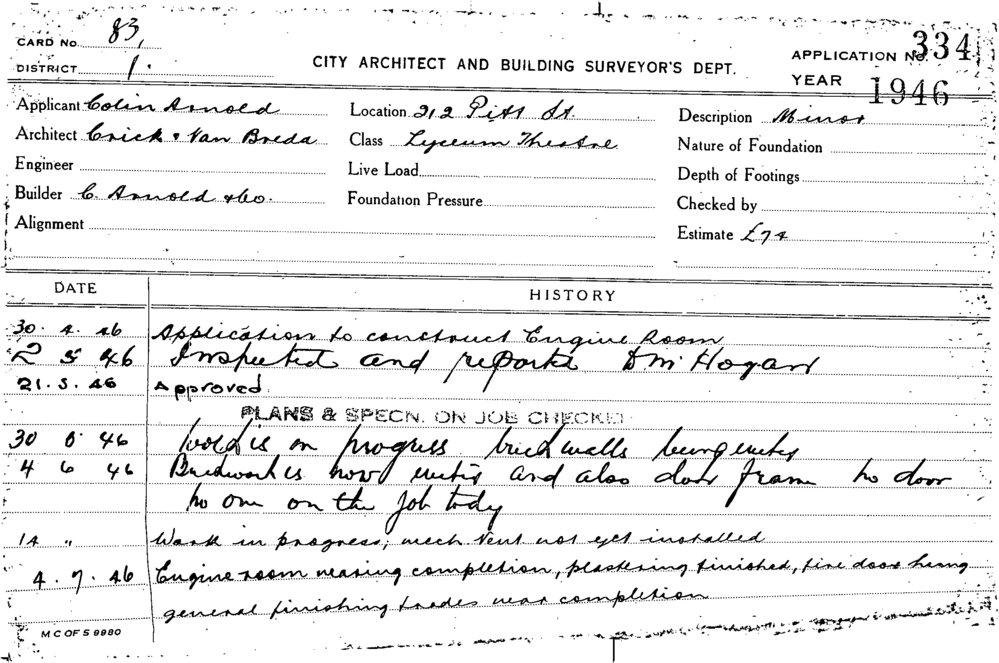 CARD No. 83,
DISTRICT 1.
CITY ARCHITECT AND BUILDING SURVEYOR'S DEPT.
APPLICATION No. 334
YEAR 1946
Applicant Colin Arnold
Location 212 Pitt St.
Description Minor
Architect Crick & Van Breda
Class Lyceum Theatre
Nature of Foundation
Engineer
Live Load
Depth of Footings
Builder C. Arnold & Co.
Foundation Pressure
Checked by
Alignment
Estimate £74
DATE
HISTORY
30. 4. 46 Application to construct Engine Room
2 5 46 Inspected and reported D M Hogan
21. 5. 46 Approved.
PLANS & SPECN. ON JOB CHECKED
30 5 46 Work is in progress brick walls being erected
4 6 46 Brickwork is now erected and also door frame no door
no one on the job today
14 " Work in progress; mech vent not yet installed
4. 7. 46 Engine room nearing completion, plastering finished, fire doors hung
general finishing trades near completion
M C OF S 9980